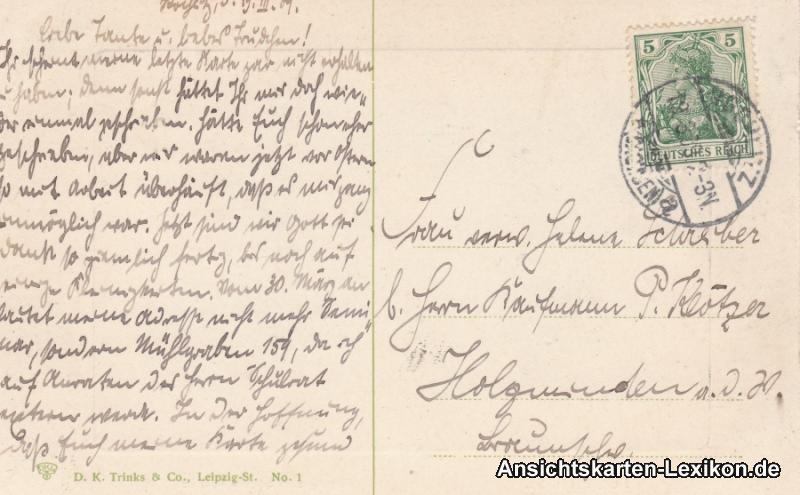 Rochlitz, d. 19. III. 09.
Liebe Tante u. liebes Trudchen!
Ihr scheint meine letzte Karte gar nicht erhalten
zu haben; denn sonst hättet Ihr mir doch wie-
der einmal geschrieben. Hätte Euch schon eher
geschrieben, aber wir waren jetzt vor Ostern
so mit Arbeit überhäuft, daß es mir ganz
unmöglich war. Jetzt sind wir Gott sei
dank so ziemlich fertig, bis noch auf
einige Kleinigkeiten. Vom 30. März an
lautet meine Adresse nicht mehr Semi-
nar, sondern Mühlgraben 159, da ich
auf Anraten des Herrn Schulrat
werde. In der Hoffnung,
daß Euch meine Karte gesund
D. K. Trinks & Co., Leipzig-St. No. 1
5 5
DEUTSCHES REICH
(SACHSEN)
3N.
Frau verw. Helene Schreiber
b. Herrn Kaufmann P. Klötzer
Holzminden a. d. W.
Braunschw.
Ansichtskarten-Lexikon.de